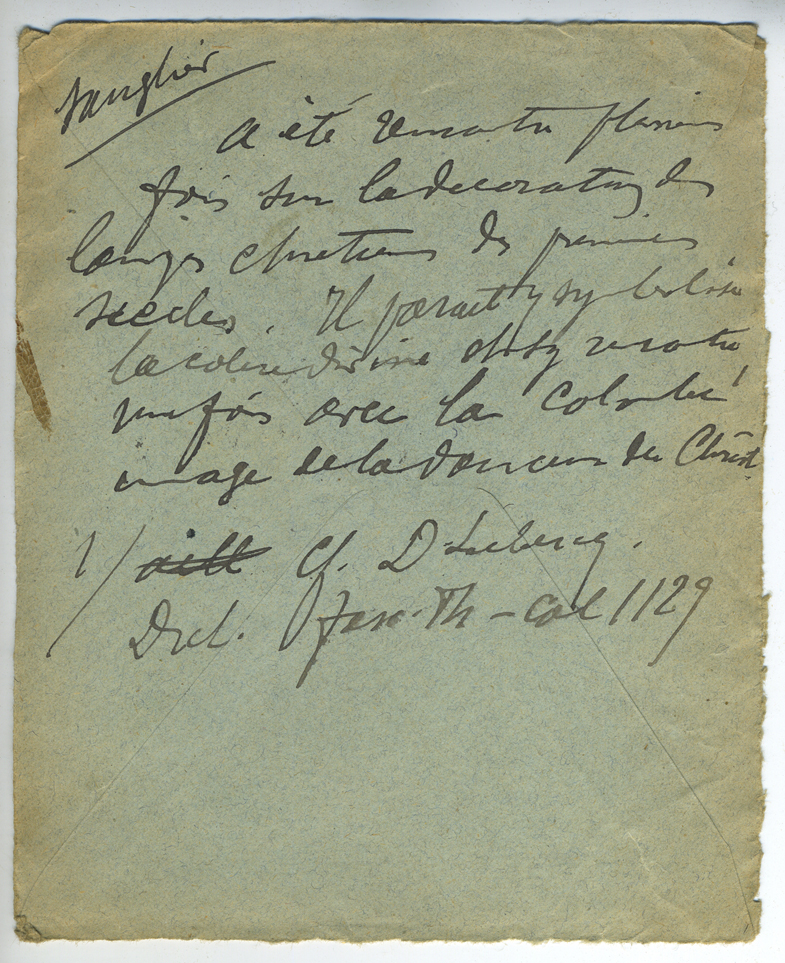 Sanglier
a été rencontré plusieurs
fois sur la décoration des
linges chrétiens des premiers
siècles. Il parait y symboliser
la colère divine et s'y rencontre
une fois avec la colombe
image de la douceur du Christ
1/ aill Cf. D. Leclercq.
Dict. Fasc. Th - Col 1129